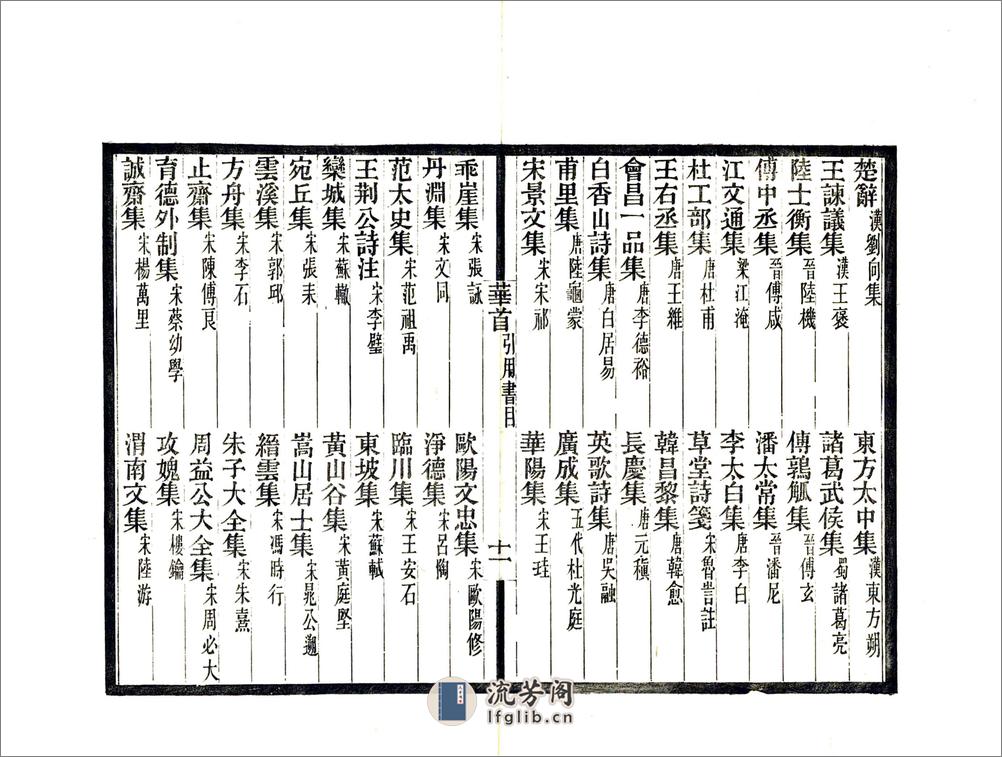 楚辭 漢劉向集 東方太中集 漢東方朔
王諫議集 漢王褒 諸葛武侯集 蜀諸葛亮
陸士衡集 晉陸機 傅鶉觚集 晉傅玄
傅中丞集 晉傅咸 潘太常集 晉潘尼
江文通集 梁江淹 李太白集 唐李白
杜工部集 唐杜甫 草堂詩箋 宋魯訔註
王右丞集 唐王維 韓昌黎集 唐韓愈
會昌一品集 唐李德裕 長慶集 唐元稹
白香山詩集 唐白居易 英歌詩集 唐吳融
甫里集 唐陸龜蒙 廣成集 五代杜光庭
宋景文集 宋宋祁 華陽集 宋王珪
華首 引用書目 十一
乖崖集 宋張詠 歐陽文忠集 宋歐陽修
丹淵集 宋文同 淨德集 宋呂陶
范太史集 宋范祖禹 臨川集 宋王安石
王荆公詩注 宋李璧 東坡集 宋蘇軾
欒城集 宋蘇轍 黃山谷集 宋黃庭堅
宛丘集 宋張耒 嵩山居士集 宋晁公遡
雲溪集 宋郭印 縉雲集 宋馮時行
方舟集 宋李石 朱子大全集 宋朱熹
止齋集 宋陳傅良 周益公大全集 宋周必大
育德外制集 宋蔡幼學 攻媿集 宋樓鑰
誠齋集 宋楊萬里 渭南文集 宋陸游
流芳阁
lfglib.cn